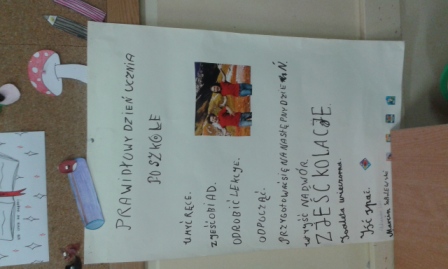 PRAWIDŁOWY DZIEŃ UCZNIA
PO SZKOLE
UMYĆ RĘCE.
ZJEŚĆ OBIAD.
ODROBIĆ LEKCJE.
ODPOCZĄĆ.
PRZYGOTOWAĆ SIĘ NA NASTĘPNY DZIEŃ.
WYJŚĆ NA DWÓR.
ZJEŚĆ KOLACJE.
Toaleta wieczorna.
Iść spać.